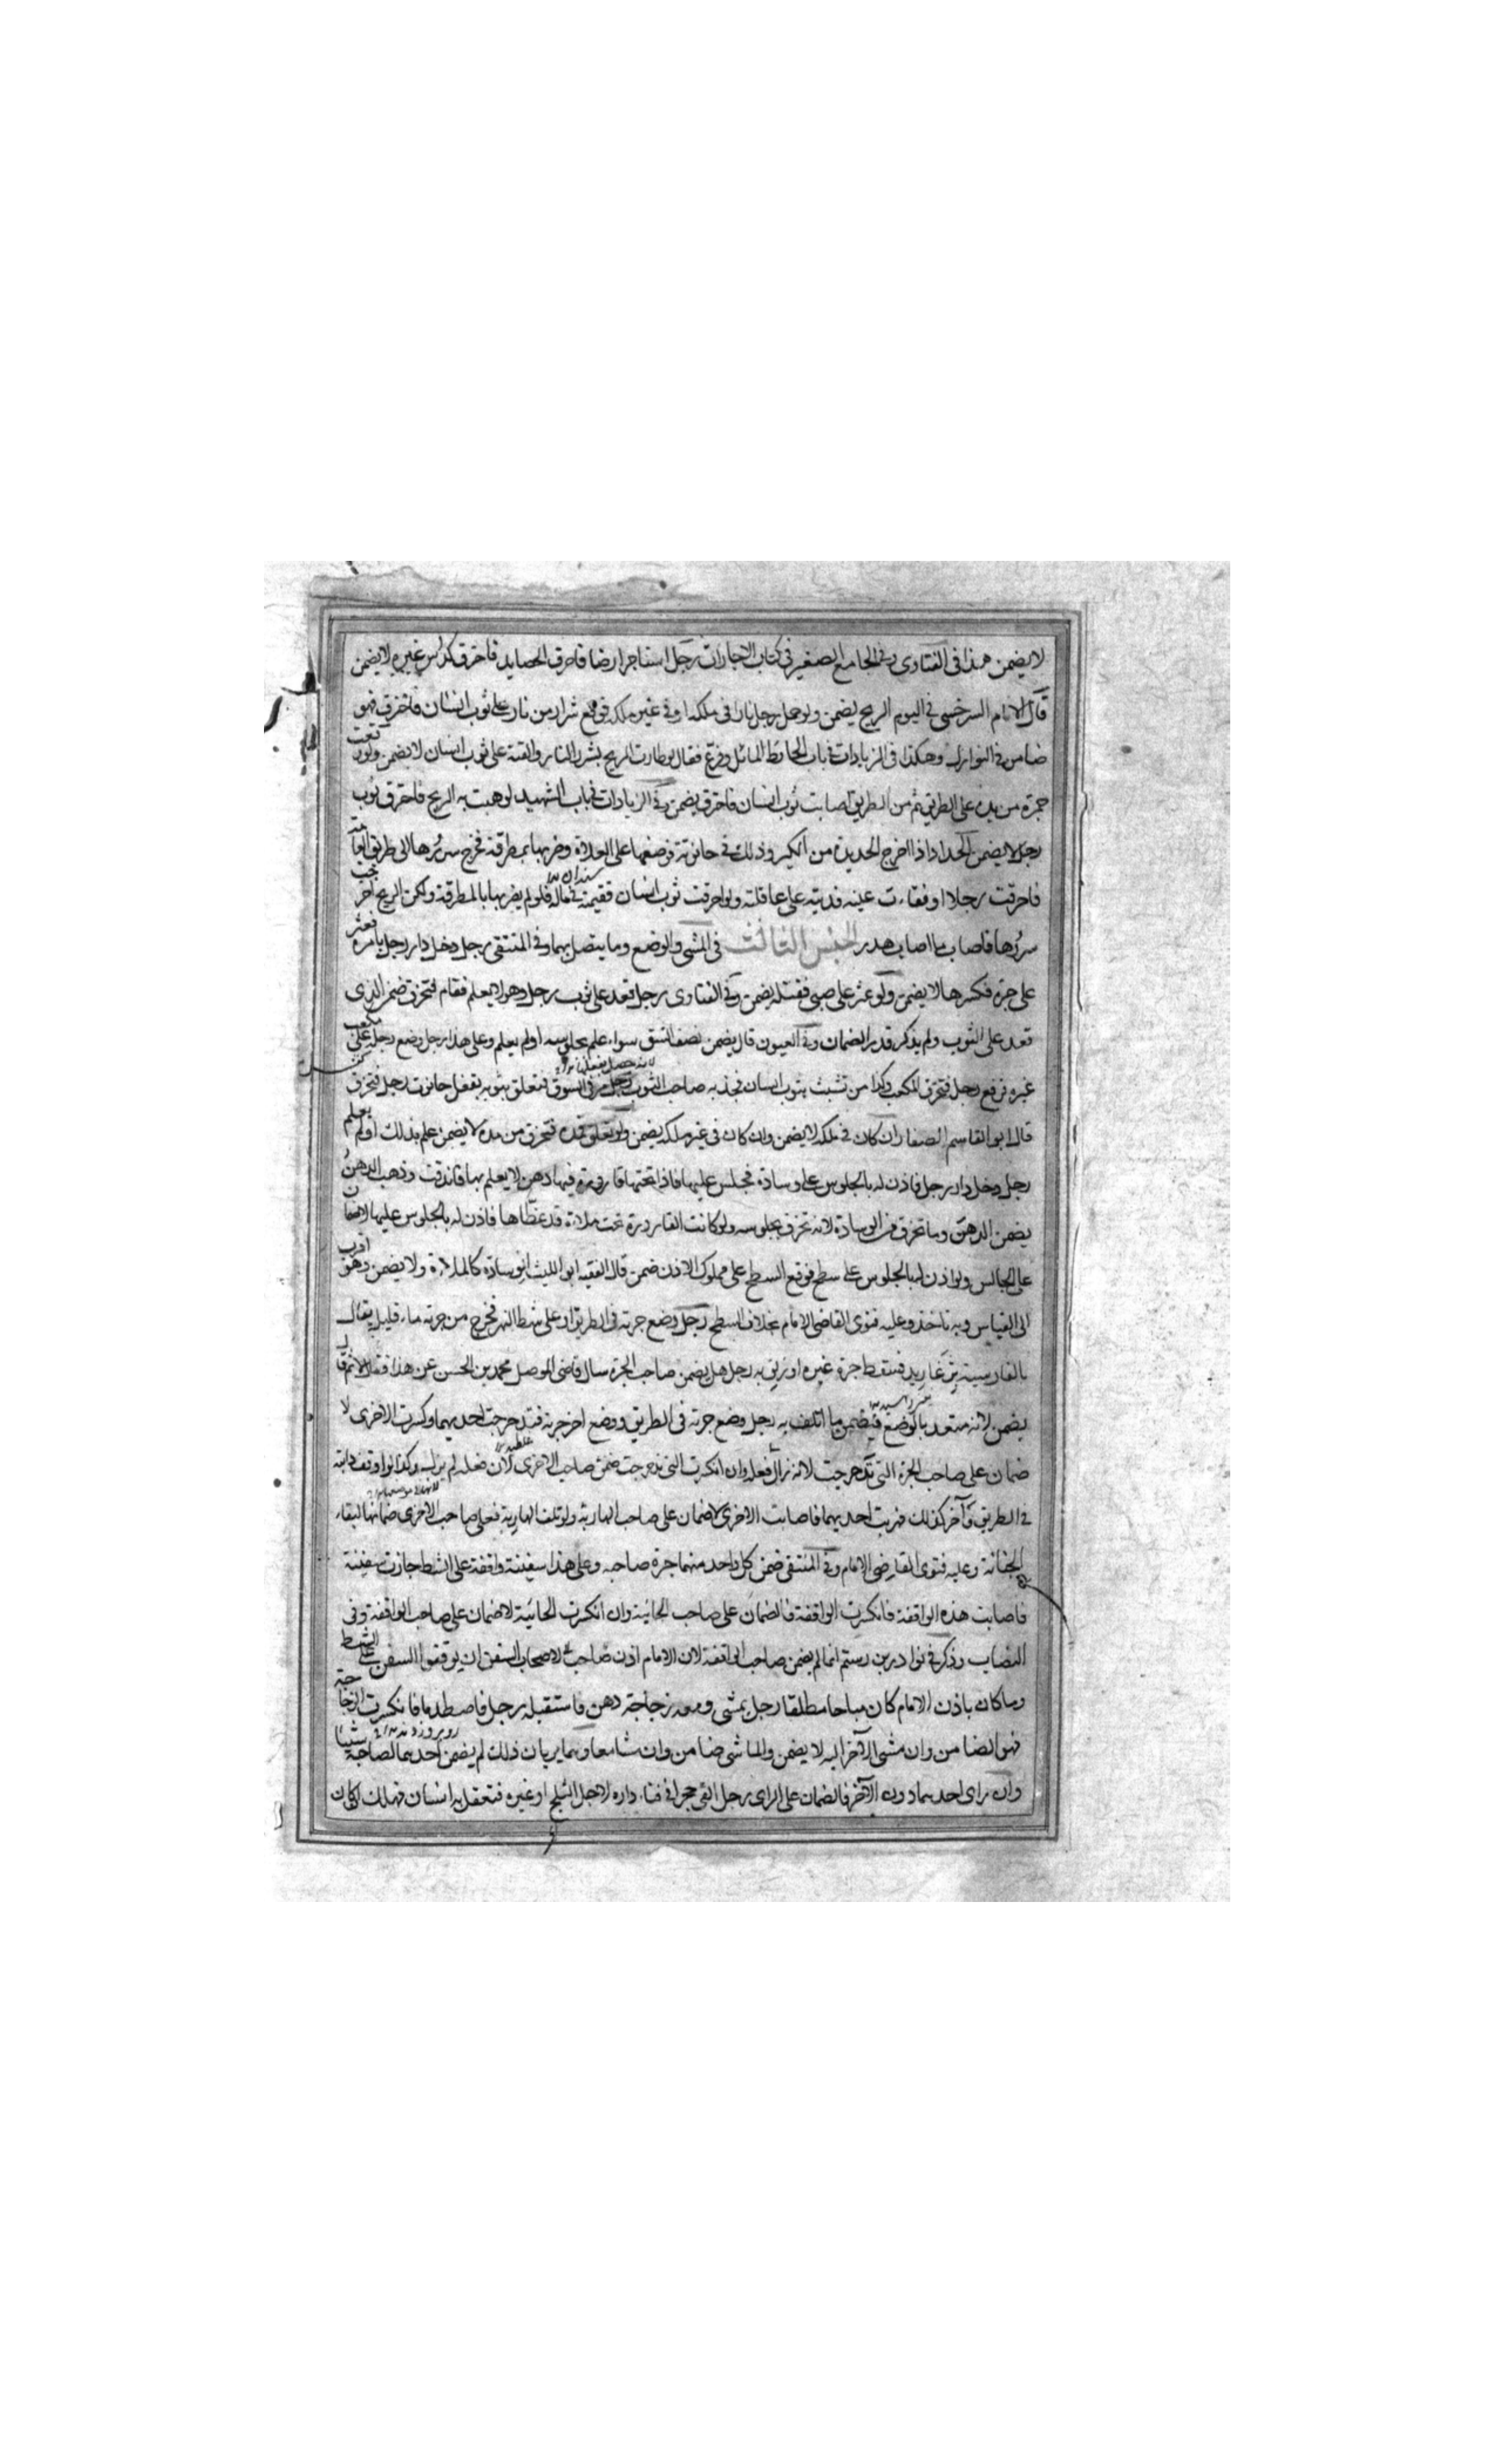 لا يضمن هذا فى الفتاوى وفى الجامع الصغير فى كتاب الاجارات رجل استاجر ارضا فاحرق الحصايد فاحترق كدس غيره لا يضمن
قال الامام السرخسى فى اليوم الريح يضمن ولو حمل رجل نارا فى ملكه او فى غير ملكه فوقع شرار من نار على ثوب انسان فاحترق فهو
ضامن فى النوازل وهكذا فى الزيادات فى باب الحائط المائل وفرع فقال لو طارت الريح بشرر النار والقته على ثوب انسان لا يضمن ولو وقعت
جمرة من يده على الطريق ثم من الطريق اصابت ثوب انسان فاحترق يضمن وفى الزيادات فى باب الشهيد لو هبت به الريح فاحترق ثوب
رجل لا يضمن الحداد اذا اخرج الحديدة من الكير وذلك فى حانوته فوضعها على العلاة وضربها بمطرقة فخرج شررها الى طريق العامة
فاحرقت رجلا او فقاءت عينه فديته على عاقلته ولو احرقت ثوب انسان فقيمته فى ماله فلو لم يضربها بالمطرقة ولكن الريح اخرجت
شررها فاصاب ما اصاب هدر الجنس الثالث فى المشى والوضع وما يتصل بهما وفى المنتقى رجل دخل دار رجل بامره فعثر
على جرة فكسرها لا يضمن ولو عثر على صبى فقتله يضمن وفى الفتاوى رجل قعد على ثوب رجل وهو لا يعلم فقام فتخرق ضمن الذى
قعد على الثوب ولم يذكر قدر الضمان وفى العيون قال يضمن نصف الشق سواء علم بجلوسه او لم يعلم وعلى هذا رجل وضع رجله على مكعب
غيره فرفع رجله فتخرق المكعب وكذا من تشبث بثوب انسان فجذبه صاحب الثوب رجل مر فى السوق فتعلق ثوبه بقفل حانوت رجل فتخرق
قال ابو القاسم الصفار ان كان فى ملكه لا يضمن وان كان فى غير ملكه يضمن ولو تعلق فتخرق من مده لا يضمن علم بذلك او لم يعلم
رجل دخل دار رجل فاذن له بالجلوس على وسادة فجلس عليها فاذا تحتها قارورة فيها دهن لا يعلم بها فاندقت وذهب الدهن
يضمن الدهن وما تخرق من الوسادة لانه تخرق بجلوسه ولو كانت القارورة تحت ملاءة قد غطاها فاذن له بالجلوس عليها لا ضمان
على الجالس ولو اذن له بالجلوس على سطح فوقع السطح على مملوك الاذن ضمن قال الفقيه ابو الليث الوسادة كالملاءة ولا يضمن وهو اقرب
الى القياس وبه ناخذ وعليه فتوى القاضى الامام بخلاف السطح رجل وضع جرته فى الطريق او على شط النهر فخرج من جرته ماء قليل يقال
بالفارسية فسقط جرة غيره او زلق به رجل هل يضمن صاحب الجرة سال قاضى الموصل محمد بن الحسن عن هذا فقال لا ثم قال
يضمن لانه متعد بالوضع فيضمن ما اتلف به رجل وضع جرته فى الطريق ووضع اخر جرته فتدحرجت احديهما وكسرت الاخرى لا
ضمان على صاحب الجرة التى تدحرجت لانه زال فعله وان انكسرت التى تدحرجت ضمن صاحب الاخرى لان فعله لم يزل وكذا لو اوقف دابته
فى الطريق وآخر كذلك فهربت احديهما فاصابت الاخرى لا ضمان على صاحب الهاربة ولو تلفت الهاربة فعلى صاحب الاخرى ضمانها لبقاء
الجناية وعليه فتوى القاضى الامام وفى المنتقى ضمن كل واحد منهما جرة صاحبه وعلى هذا سفينة واقفة على الشط جازت سفينة
فاصابت هذه الواقفة فانكسرت الواقفة فالضمان على صاحب الجائية وان انكسرت الجائية لا ضمان على صاحب الواقفة وفى
النصاب وذكر فى نوادر بن رستم انما لم يضمن صاحب الواقفة لان الامام اذن لاصحاب السفن ان يوقفوا السفن على الشط
وما كان باذن الامام كان مباحا مطلقا رجل يمشى ومعه زجاجة دهن فاستقبله رجل فاصطدما فانكسرت الزجاجة
فهو الضامن وان مشى الآخر اليه لا يضمن والماشى ضامن وان مشيا معا وهما يريان ذلك لم يضمن احدهما لصاحبه شيئا
وان راى احدهما دون الآخر فالضمان على الراى رجل القى حجرا فى فناء داره لاجل الثلج او غيره فتعقل به انسان فهلك ان كان